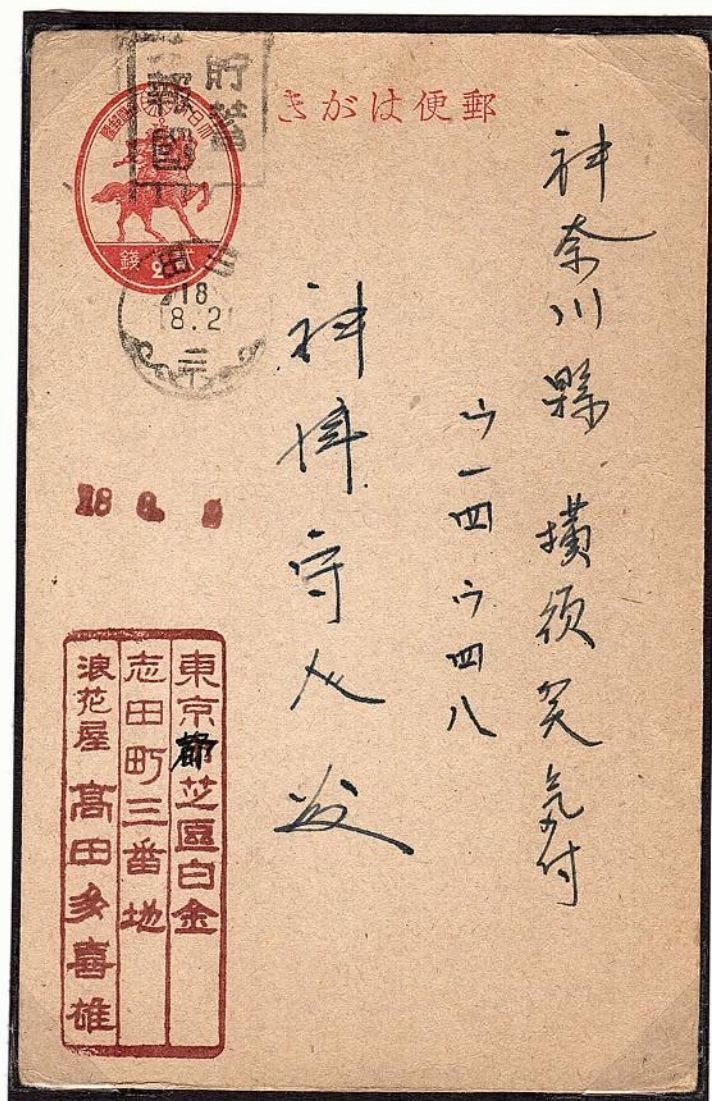 郵便はがき
貯蓄
報國
錢 2
18
神奈川縣横須賀気付
ウ一四ウ四八
守人
18
東京都芝區白金
志田町三番地
浪花屋 髙田多喜雄